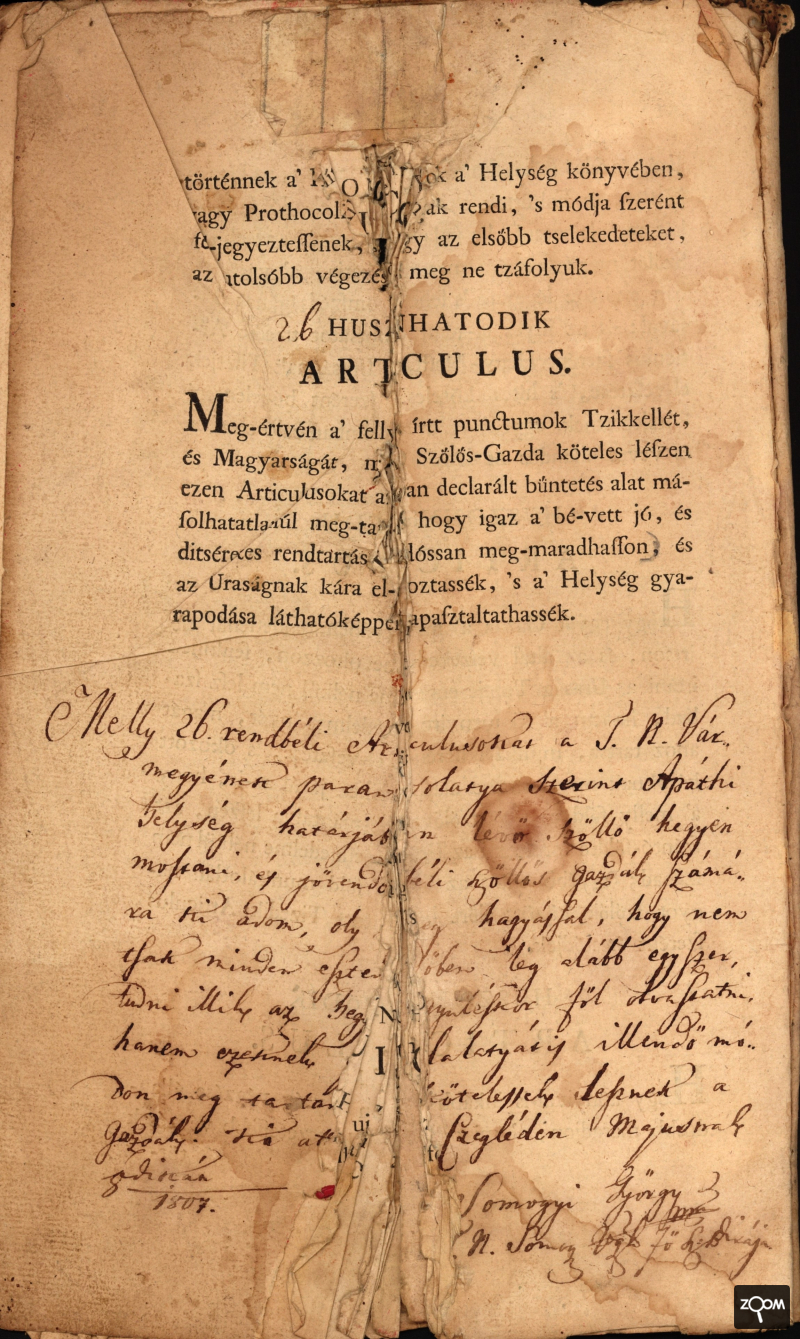 történnek a' a' Helység könyvében,
Prothocol ak rendi, 's módja ſzerént
jegyezteſſenek, gy az elsőbb tselekedeteket,
az utolsóbb végezés meg ne tzáfolyuk.
26 HUSZONHATODIK
ARTICULUS.
Meg-értvén a' fell írtt punctumok Tzikkellét,
és Magyarságát, Szőlős-Gazda köteles léſzen
ezen Articulusokat a an declarált bűntetés alat má-
ſolhatatlanúl meg-ta hogy igaz a' bé-vett jó, és
ditséretes rendtartás lóssan meg-maradhaſſon, és
az Uraságnak kára el- oztassék, 's a' Helység gya-
rapodása láthatóképpen tapaſztaltathassék.
Melly 26. rendbéli Articulusokat a T. N. Vár-
megyének parantsolatya szerint Apáthi
helység határjában lévő szőllő hegyen
mostani, és jövendőbéli szőllős gazdák számá-
ra ki adom, oly hagyással, hogy nem
tsak minden esztendőben leg alább egyszer,
tudni illik az heg gyüléskor föl olvastatni,
hanem ezeknek illendő mó-
don meg tartani kötelessek lesznek a
gazdák. Czegléden Majusnak
dikán
1807.
Somogyi György
N. Somogy
ZOOM